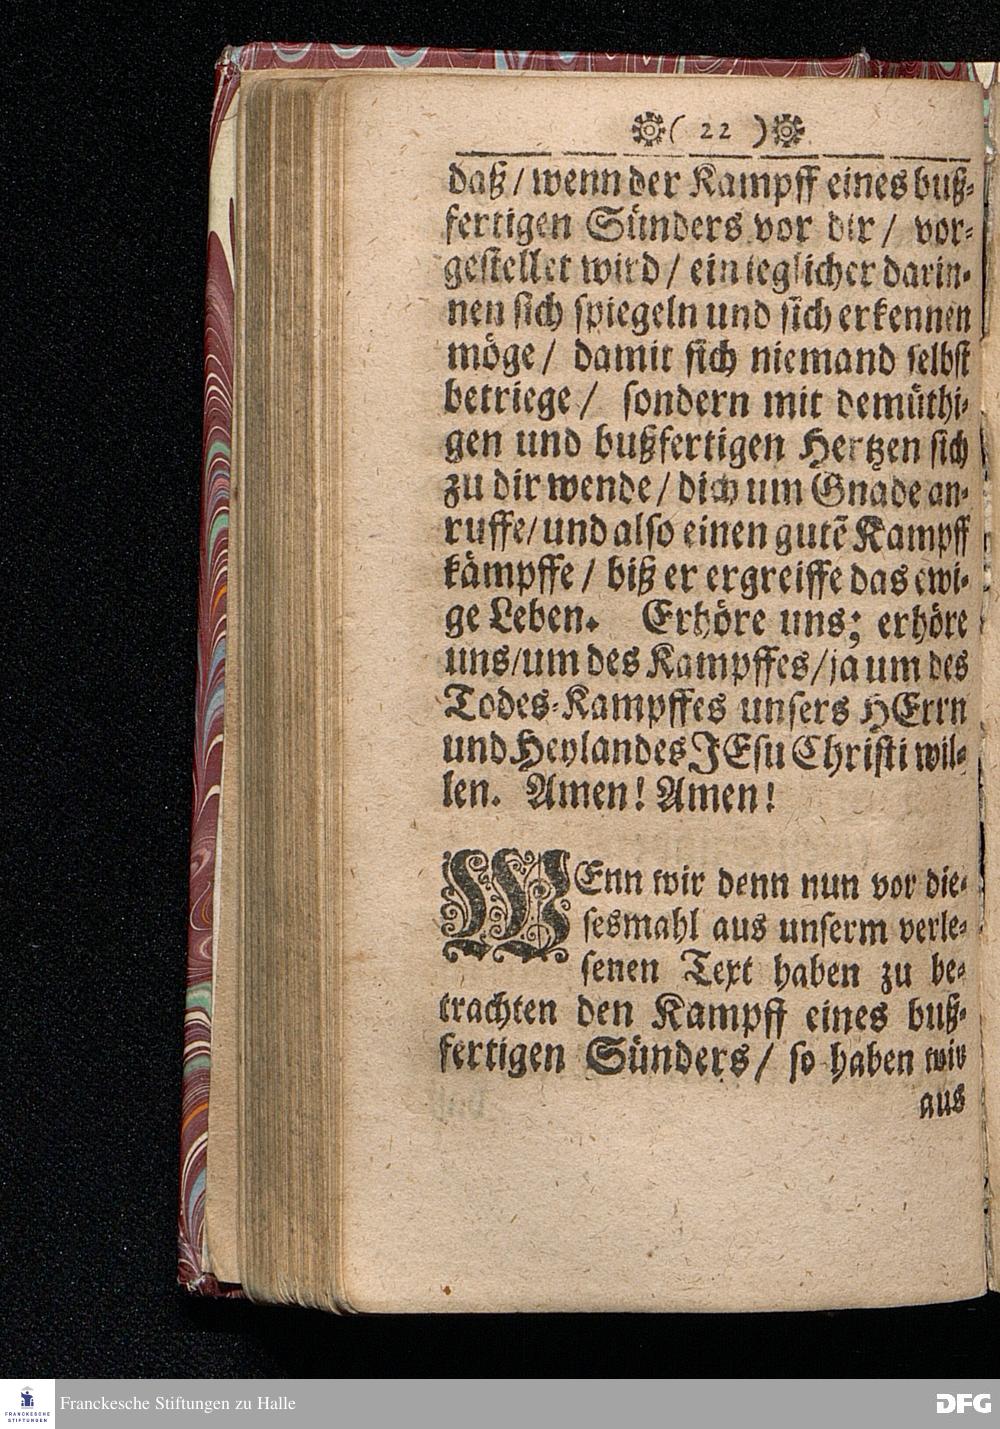 ( 22 )
daß / wenn der Kampff eines buß-
fertigen Sünders vor dir / vor-
gestellet wird / ein ieglicher darin-
nen sich spiegeln und sich erkennen
möge / damit sich niemand selbst
betriege / sondern mit demüthi-
gen und bußfertigen Hertzen sich
zu dir wende / dich um Gnade an-
ruffe / und also einen gutẽ Kampff
kämpffe / biß er ergreiffe das ewi-
ge Leben. Erhöre uns; erhöre
uns / um des Kampffes / ja um des
Todes-Kampffes unsers HErrn
und Heylandes JEsu Christi wil-
len. Amen! Amen!
WEnn wir denn nun vor die-
sesmahl aus unserm verle-
senen Text haben zu be-
trachten den Kampff eines buß-
fertigen Sünders / so haben wir
aus
FRANCKESCHE STIFTUNGEN
Franckesche Stiftungen zu Halle
DFG